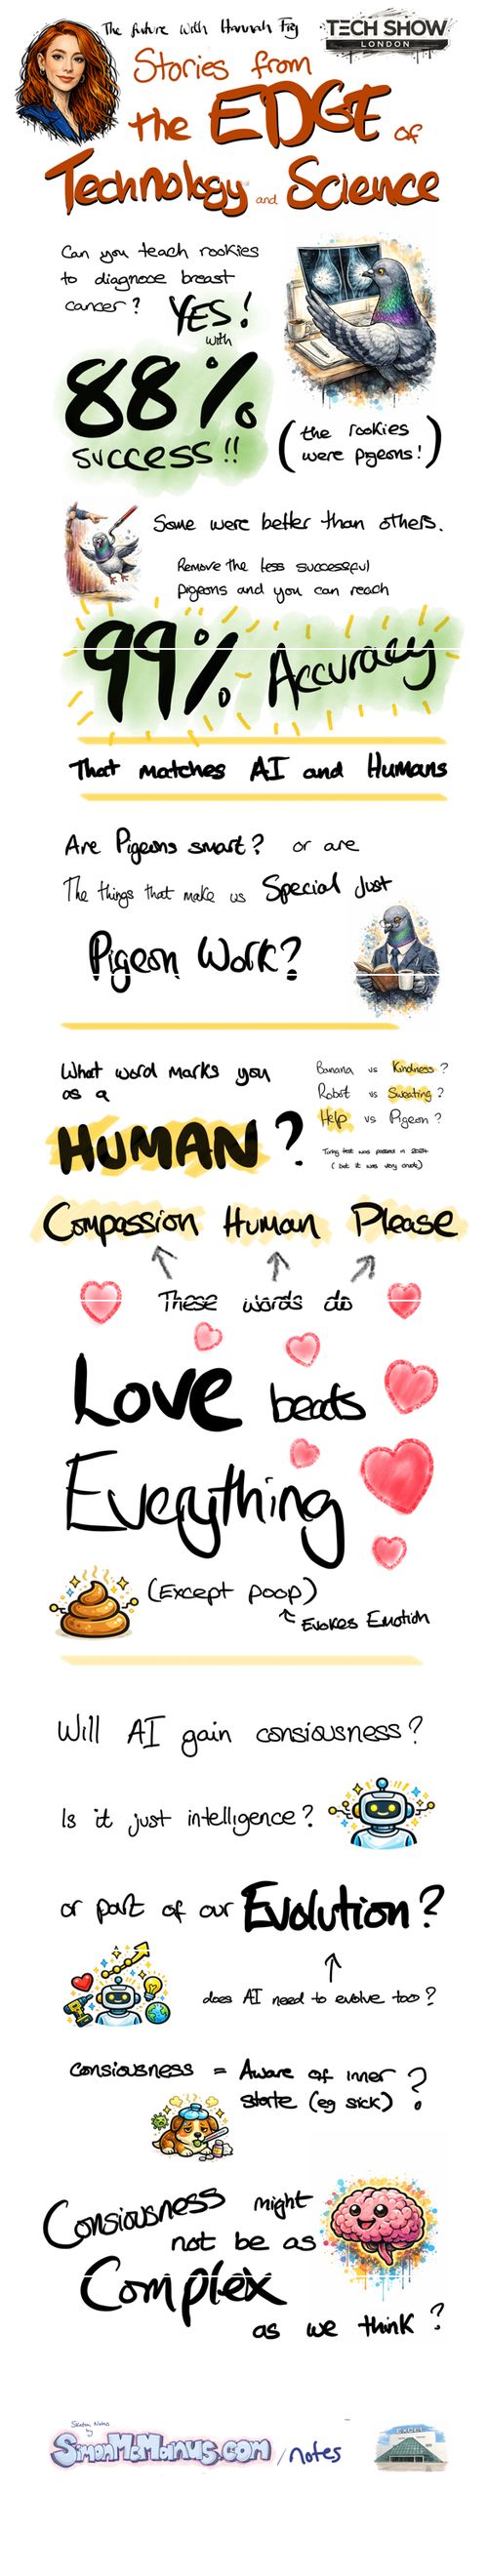 The future with Hannah Fry
TECH SHOW
LONDON
Stories from
the EDGE of
Technology and Science
Can you teach rookies
to diagnose breast
cancer? YES!
with
88%
success!!
(the rookies
were pigeons!)
Some were better than others.
Remove the less successful
pigeons and you can reach
99% Accuracy
That matches AI and Humans
Are Pigeons smart? or are
The things that make us Special Just
Pigeon Work?
What word marks you
as a
HUMAN?
Banana vs Kindness?
Robot vs Sweating?
Help vs Pigeon?
Turing test was passed in 2024
(but it was very crude)
Compassion Human Please
These words do
Love beats
Everything
(Except poop)
Evokes Emotion
Will AI gain consiousness?
Is it just intelligence?
or part of our Evolution?
does AI need to evolve too?
Consiousness = Aware of inner
state (eg sick)?
Consiousness might
not be as
Complex
as we think?
Sketch Notes
by
SimonMcManus.com/notes